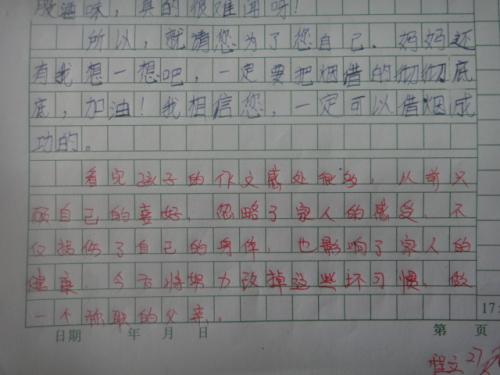 味，真的很难闻呀！
所以，就请您为了您自己、妈妈还
有我想一想吧，一定要把烟借的彻彻底
底，加油！我相信您，一定可以借烟成
功的。
看完孩子的作文感处很多，从前只
顾自己的喜好，忽略了家人的感受，不
仅损伤了自己的身体，也影响了家人的
健康，今后将努力改掉这些坏习惯，做
一个称职的父亲。
17
日期 年 月 日 第 页
27